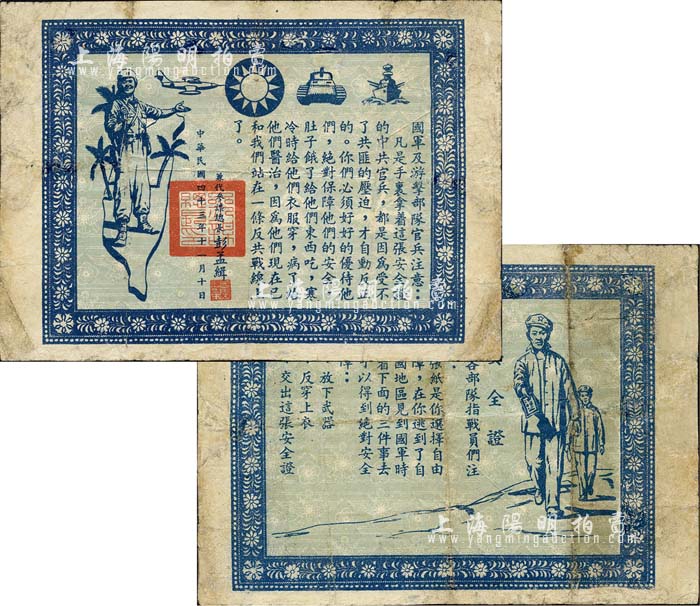 國軍及游擊部隊官兵注意：
凡是手裏拿着這張安全證
的中共官兵，都是因為受不
了共匪的壓迫，才自動反正
的。你們必須好好的優待他
們，絕對保障他們的安全，
肚子餓了給他們東西吃，寒
冷時給他們衣服穿，病了為
他們醫治，因為他們現在已
和我們站在一條反共戰線
了。
兼代參謀總長彭孟緝
中華民國四十三年十一月十日
全證
各部隊指戰員們注
張紙是你選擇自由
障，在你逃到了自
國地區見到國軍時
着下面的三件事去
可以得到絕對安全
障：
放下武器
反穿上衣
交出這張安全證
上海陽明拍賣
www.yangmingauction.com
上海陽明拍賣
www.yangmingauction.com